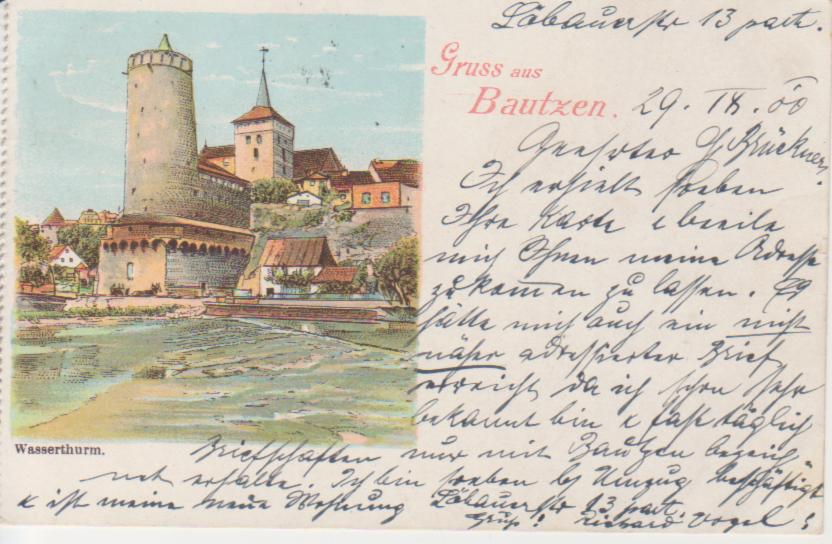 Löbauerstr 13 part.
Gruss aus
Bautzen.
29. IX. 00
Geehrter H Brückner
Ich erhielt soeben
Ihre Karte & beeile
mich Ihnen meine Adresse
zukommen zu lassen. Es
hätte mich auch ein nicht
näher adressierter Brief
erreicht da ich schon sehr
bekannt bin & fast täglich
Briefschaften nur mit Bautzen bezeich
net erhalte. Ich bin soeben b/ Umzug beschäftigt
& ist meine neue Wohnung Löbauerstr 13 part.
Gruß! Richard Vogel!
Wasserthurm.